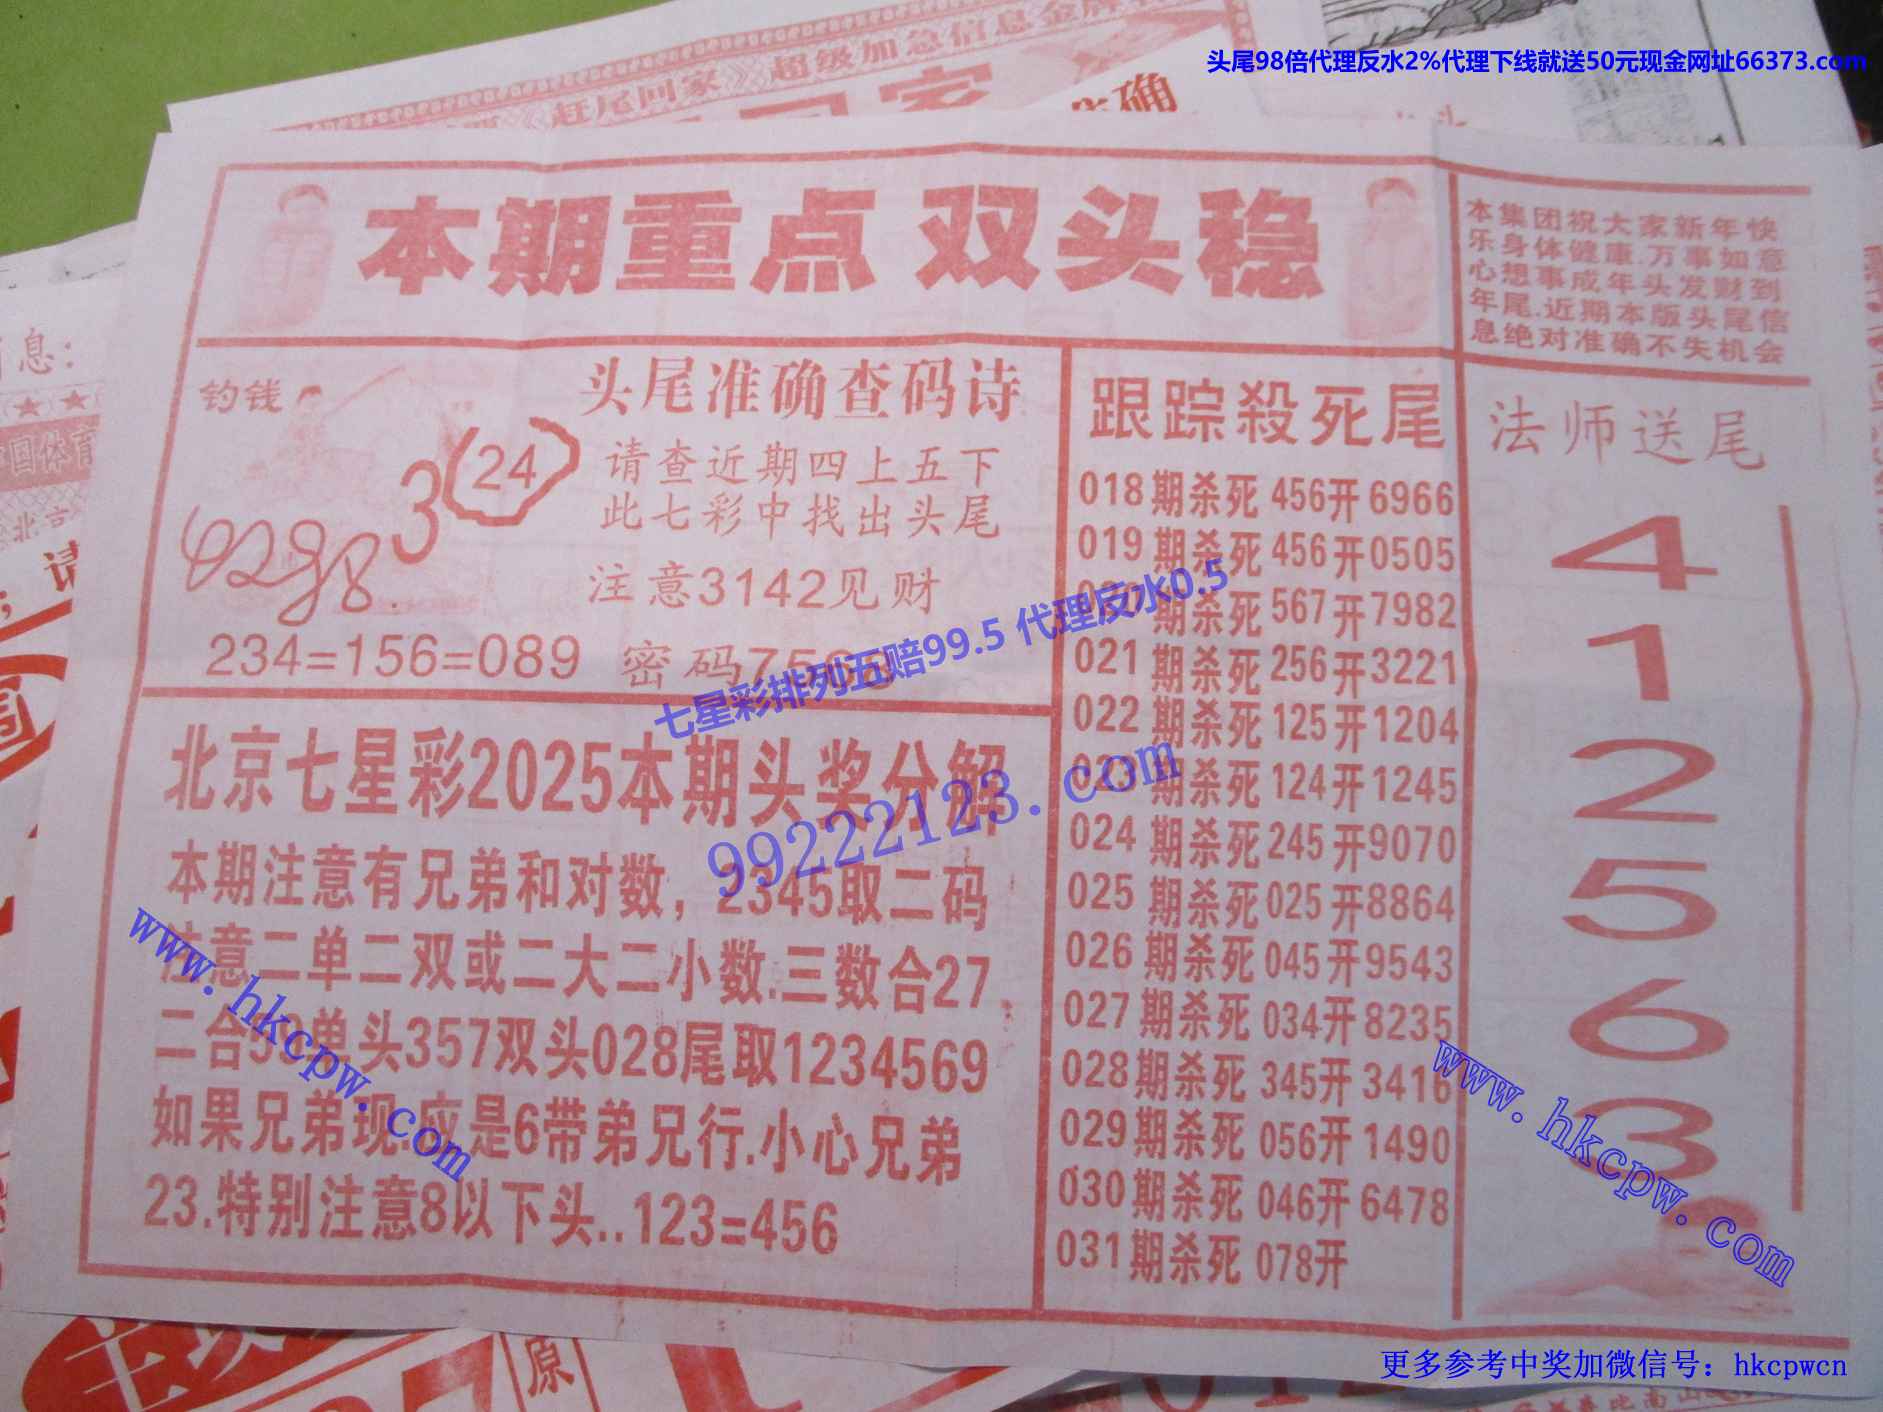 头尾98倍代理反水2%代理下线就送50元现金网址66373.com
赶尾回家 超级加急信息金牌
准确
本期重点 双头稳
本集团祝大家新年快
乐身体健康.万事如意
心想事成年头发财到
年尾.近期本版头尾信
息绝对准确不失机会
钓钱
3 (24)
头尾准确查码诗
请查近期四上五下
此七彩中找出头尾
注意3142见财
234=156=089 密码7568
七星彩排列五赔99.5 代理反水0.5
99222123.com
北京七星彩2025本期头奖分解
本期注意有兄弟和对数，2345取二码
注意二单二双或二大二小数.三数合27.
二合59单头357双头028尾取1234569
如果兄弟现.应是6带弟兄行.小心兄弟
23.特别注意8以下头..123=456
www.hkcpw.com
跟踪殺死尾
018期杀死 456开6966
019期杀死 456开0505
020期杀死 567开7982
021期杀死 256开3221
022期杀死 125开1204
023期杀死 124开1245
024期杀死 245开9070
025期杀死 025开8864
026期杀死 045开9543
027期杀死 034开8235
028期杀死 345开3416
029期杀死 056开1490
030期杀死 046开6478
031期杀死 078开
法师送尾
4
1
2
5
6
3
www.hkcpw.com
息：
国体育
北京
原
更多参考中奖加微信号：hkcpwcn